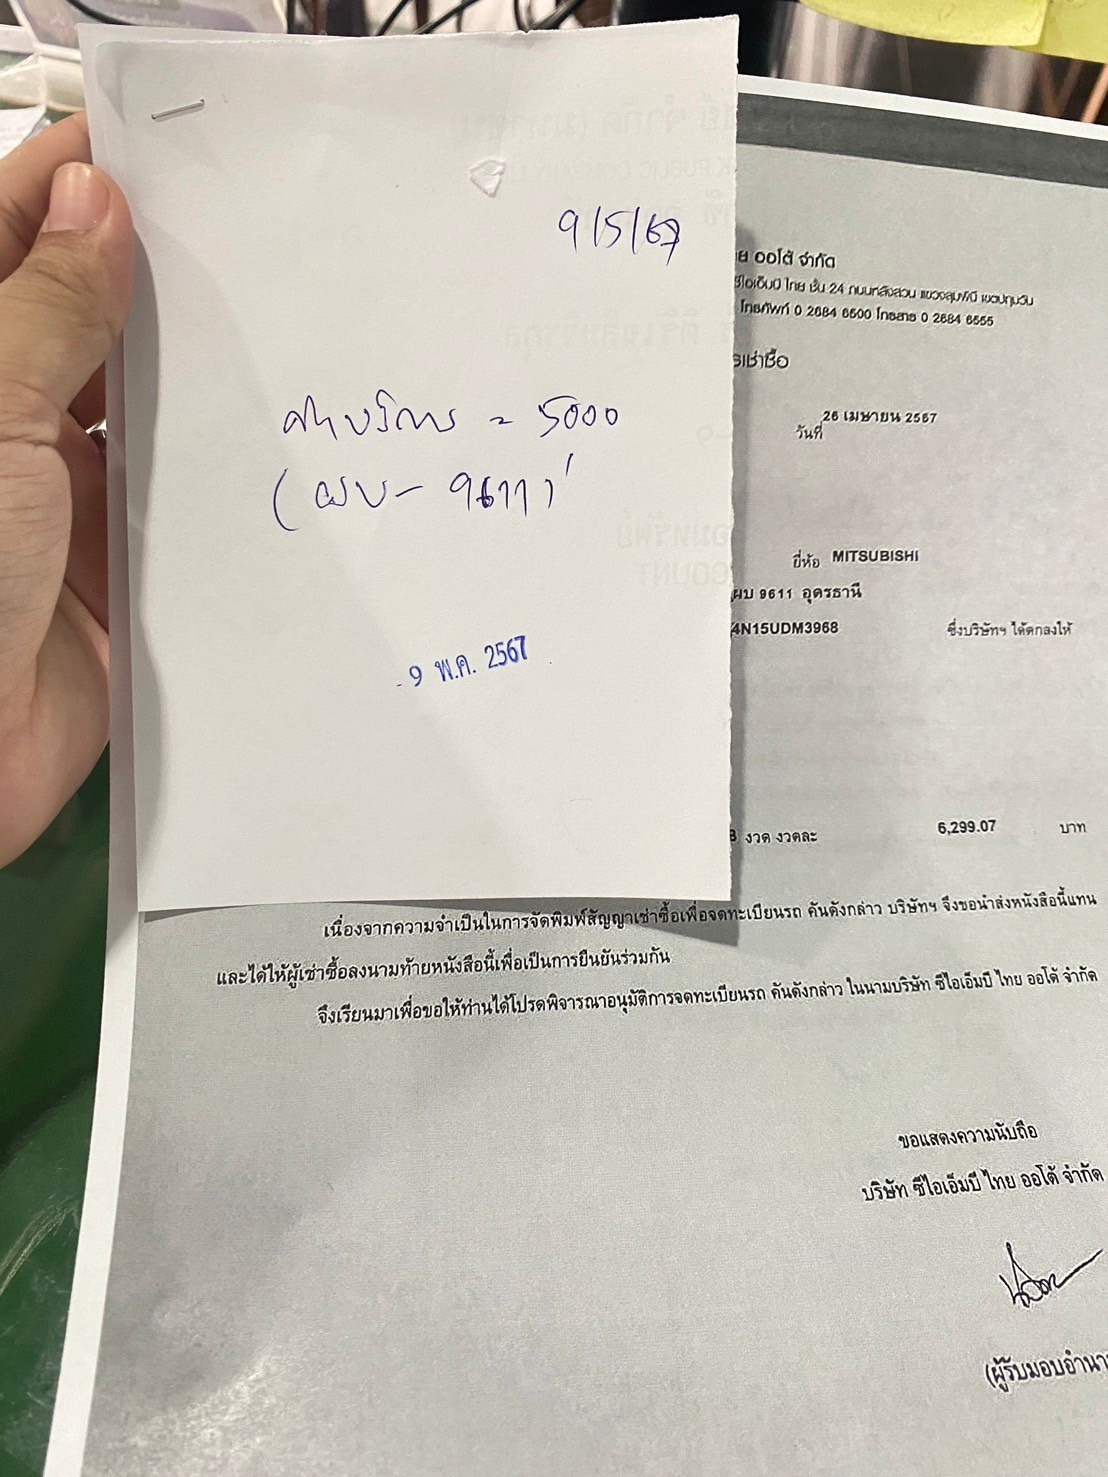 9/5/67
ค่าบริการ = 5000
(ผบ - 9611)
9 พ.ค. 2567
ย ออโต้ จำกัด
ซีไอเอ็มบี ไทย ชั้น 24 ถนนหลังสวน แขวงลุมพินี เขตปทุมวัน
โทรศัพท์ 0 2684 6500 โทรสาร 0 2684 6555
รเช่าซื้อ
วันที่ 26 เมษายน 2567
ยี่ห้อ MITSUBISHI
ผบ 9611 อุดรธานี
4N15UDM3968 ซึ่งบริษัทฯ ได้ตกลงให้
งวด งวดละ 6,299.07 บาท
เนื่องจากความจำเป็นในการจัดพิมพ์สัญญาเช่าซื้อเพื่อจดทะเบียนรถ คันดังกล่าว บริษัทฯ จึงขอนำส่งหนังสือนี้แทน
และได้ให้ผู้เช่าซื้อลงนามท้ายหนังสือนี้เพื่อเป็นการยืนยันร่วมกัน
จึงเรียนมาเพื่อขอให้ท่านได้โปรดพิจารณาอนุมัติการจดทะเบียนรถ คันดังกล่าว ในนามบริษัท ซีไอเอ็มบี ไทย ออโต้ จำกัด
ขอแสดงความนับถือ
บริษัท ซีไอเอ็มบี ไทย ออโต้ จำกัด
(ผู้รับมอบอำนา